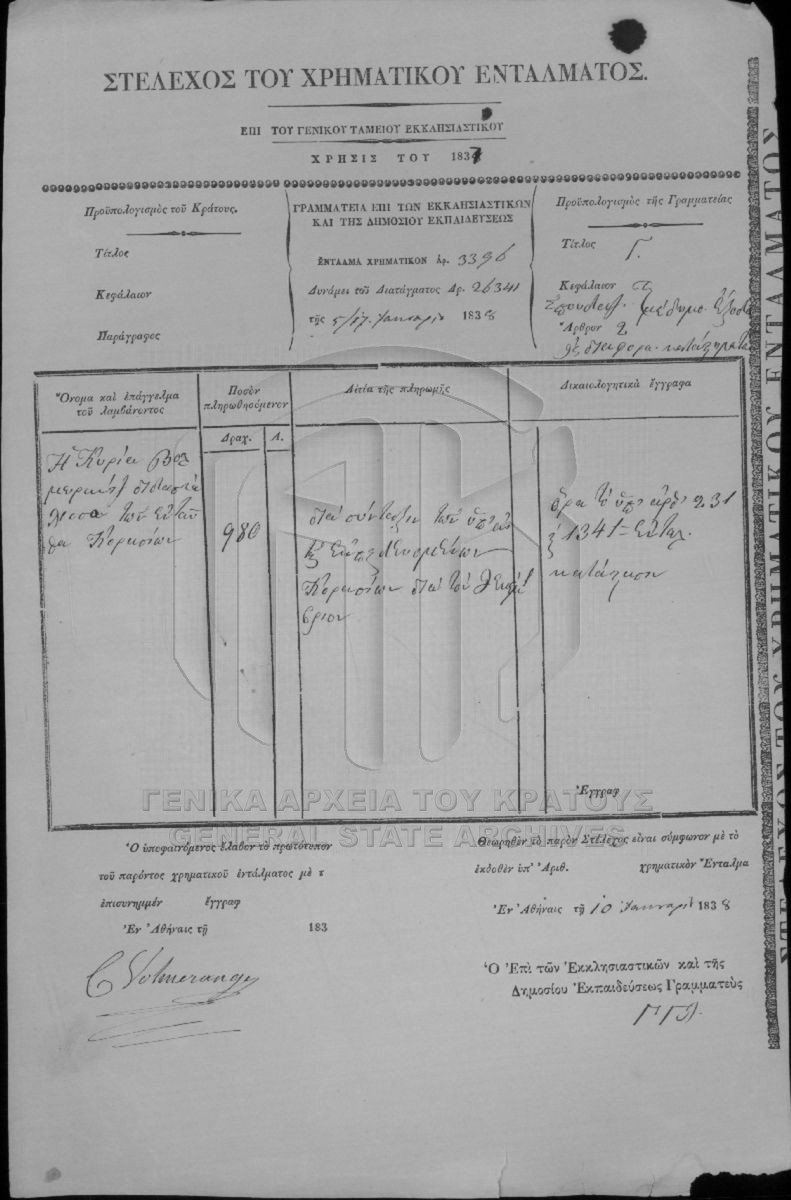 ΣΤΕΛΕΧΟΣ ΤΟΥ ΧΡΗΜΑΤΙΚΟΥ ΕΝΤΑΛΜΑΤΟΣ.
ΕΠΙ ΤΟΥ ΓΕΝΙΚΟΥ ΤΑΜΕΙΟΥ ΕΚΚΛΗΣΙΑΣΤΙΚΟΥ
ΧΡΗΣΙΣ ΤΟΥ 1837
Προϋπολογισμὸς τοῦ Κράτους.
Τίτλος
Κεφάλαιον
Παράγραφος
ΓΡΑΜΜΑΤΕΙΑ ΕΠΙ ΤΩΝ ΕΚΚΛΗΣΙΑΣΤΙΚΩΝ
ΚΑΙ ΤΗΣ ΔΗΜΟΣΙΟΥ ΕΚΠΑΙΔΕΥΣΕΩΣ
ΕΝΤΑΛΜΑ ΧΡΗΜΑΤΙΚΟΝ Ἀρ. 3396
Δυνάμει τοῦ Διατάγματος Ἀρ. 26341
τῆς 5/17 Ἰανουαρίου 1838
Προϋπολογισμὸς τῆς Γραμματείας
Τίτλος Γ.
Κεφάλαιον
Ἄρθρον 2
διάφορα καταστήματα
Ὄνομα καὶ ἐπάγγελμα
τοῦ λαμβάνοντος
Ποσὸν
πληρωθησόμενον
Δραχ. Λ.
Αἰτία τῆς πληρωμῆς
Δικαιολογητικὰ ἔγγραφα
Ἡ Κυρία Βολ
μεράνζ διδασκά
λισσα τῶν ἐνταῦ
θα Κορασίων
980
διὰ σύνταξιν τῶν
Κορασίων διὰ τὸν Δεκέμ
βριον
ὅρα τὸ ὑπ' ἀρ. 231
1341 Ἐνταλ.
κατάστασιν
Ἔγγραφ
ΓΕΝΙΚΑ ΑΡΧΕΙΑ ΤΟΥ ΚΡΑΤΟΥΣ
GENERAL STATE ARCHIVES
Ὁ ὑποφαινόμενος ἔλαβον τὸ πρωτότυπον
τοῦ παρόντος χρηματικοῦ ἐντάλματος μὲ τ
ἐπισυνημμέν ἔγγραφ
Ἐν Ἀθήναις τῇ 183
C Volmerange
Θεωρηθὲν τὸ παρὸν Στέλεχος εἶναι σύμφωνον μὲ τὸ
ἐκδοθὲν ὑπ' Ἀριθ. χρηματικὸν Ἔνταλμα
Ἐν Ἀθήναις τῇ 10 Ἰανουαρίου 1838
Ὁ Ἐπὶ τῶν Ἐκκλησιαστικῶν καὶ τῆς
Δημοσίου Ἐκπαιδεύσεως Γραμματεὺς
ΣΤΕΛΕΧΟΣ ΤΟΥ ΧΡΗΜΑΤΙΚΟΥ ΕΝΤΑΛΜΑΤΟΣ